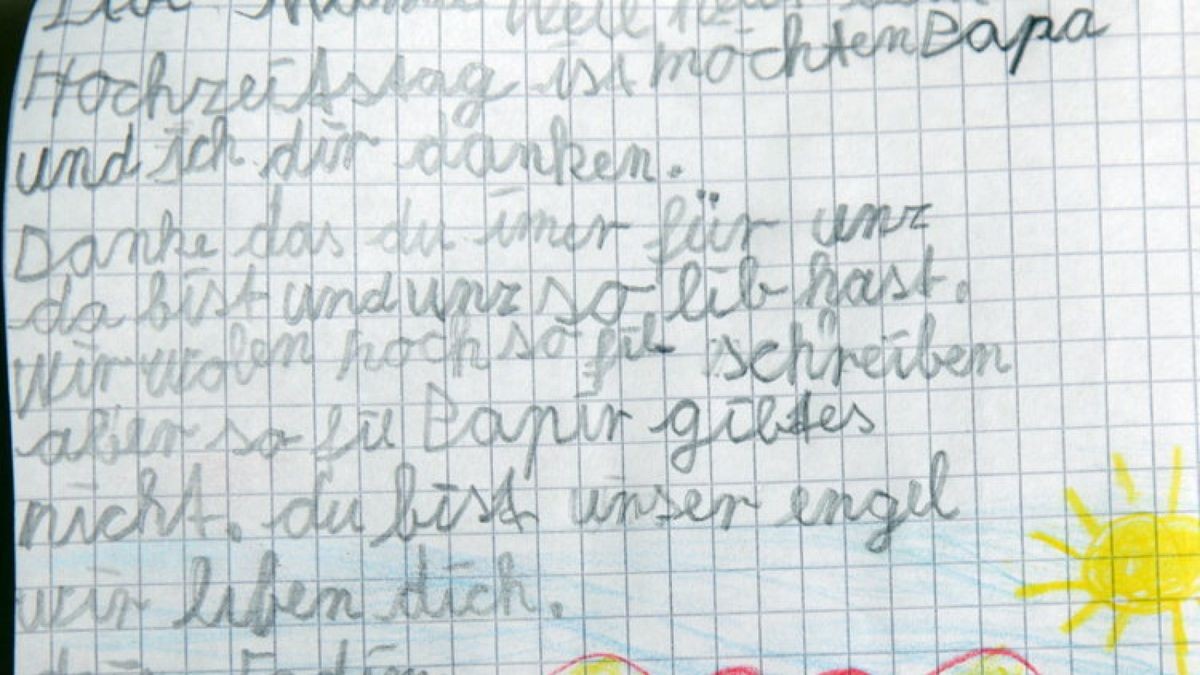 Mama weil heut
Hochzeitstag ist möchten Papa
und ich dir danken.
Danke das du imer für unz
da bist und unz so lib hast.
Wir wolen noch so fil schreiben
aber so fil Papir gibtes
nicht. du bist unser engel
wir liben dich.